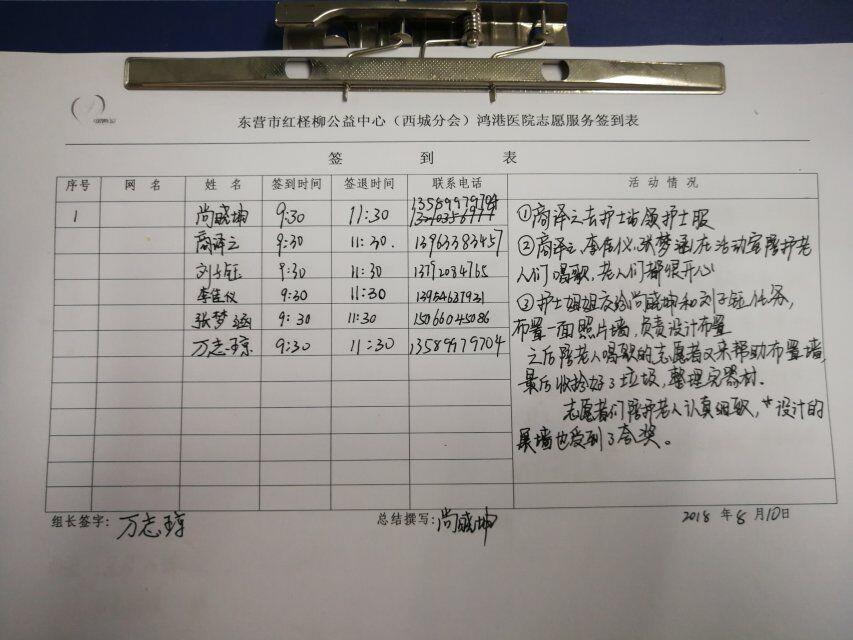 东营市红柽柳公益中心（西城分会）鸿港医院志愿服务签到表
签 到 表
序号 网 名 姓 名 签到时间 签退时间 联系电话 活 动 情 况
1 尚晓坤 9:30 11:30 13589979704
商译之 9:30 11:30. 13963383457
刘子钰 9:30 11:30 13792084765
李佳仪 9:30 11:30 13954637921
张梦涵 9:30 11:30 15066045086
万志琼 9:30 11:30 13589979704
①商译之去护士站领护士服
②商译之、李佳仪、张梦涵在活动室陪护老
人们唱歌，老人们都很开心
③护士姐姐交给尚晓坤和刘子钰任务，
布置一面照片墙，负责设计布置
之后陪老人唱歌的志愿者又来帮助布置墙，
最后收拾好了垃圾，整理完器材.
志愿者们陪护老人认真细致，设计的
展墙也受到了夸奖。
组长签字：万志琼 总结撰写：尚晓坤 2018 年 8 月 10 日